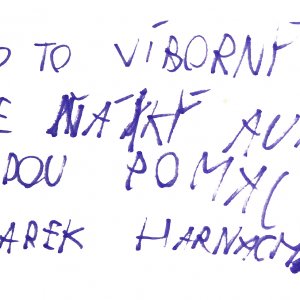 O TO VÍBORNÝ
E NÁKÝ AU
DOU POMAC
AREK HARNACM